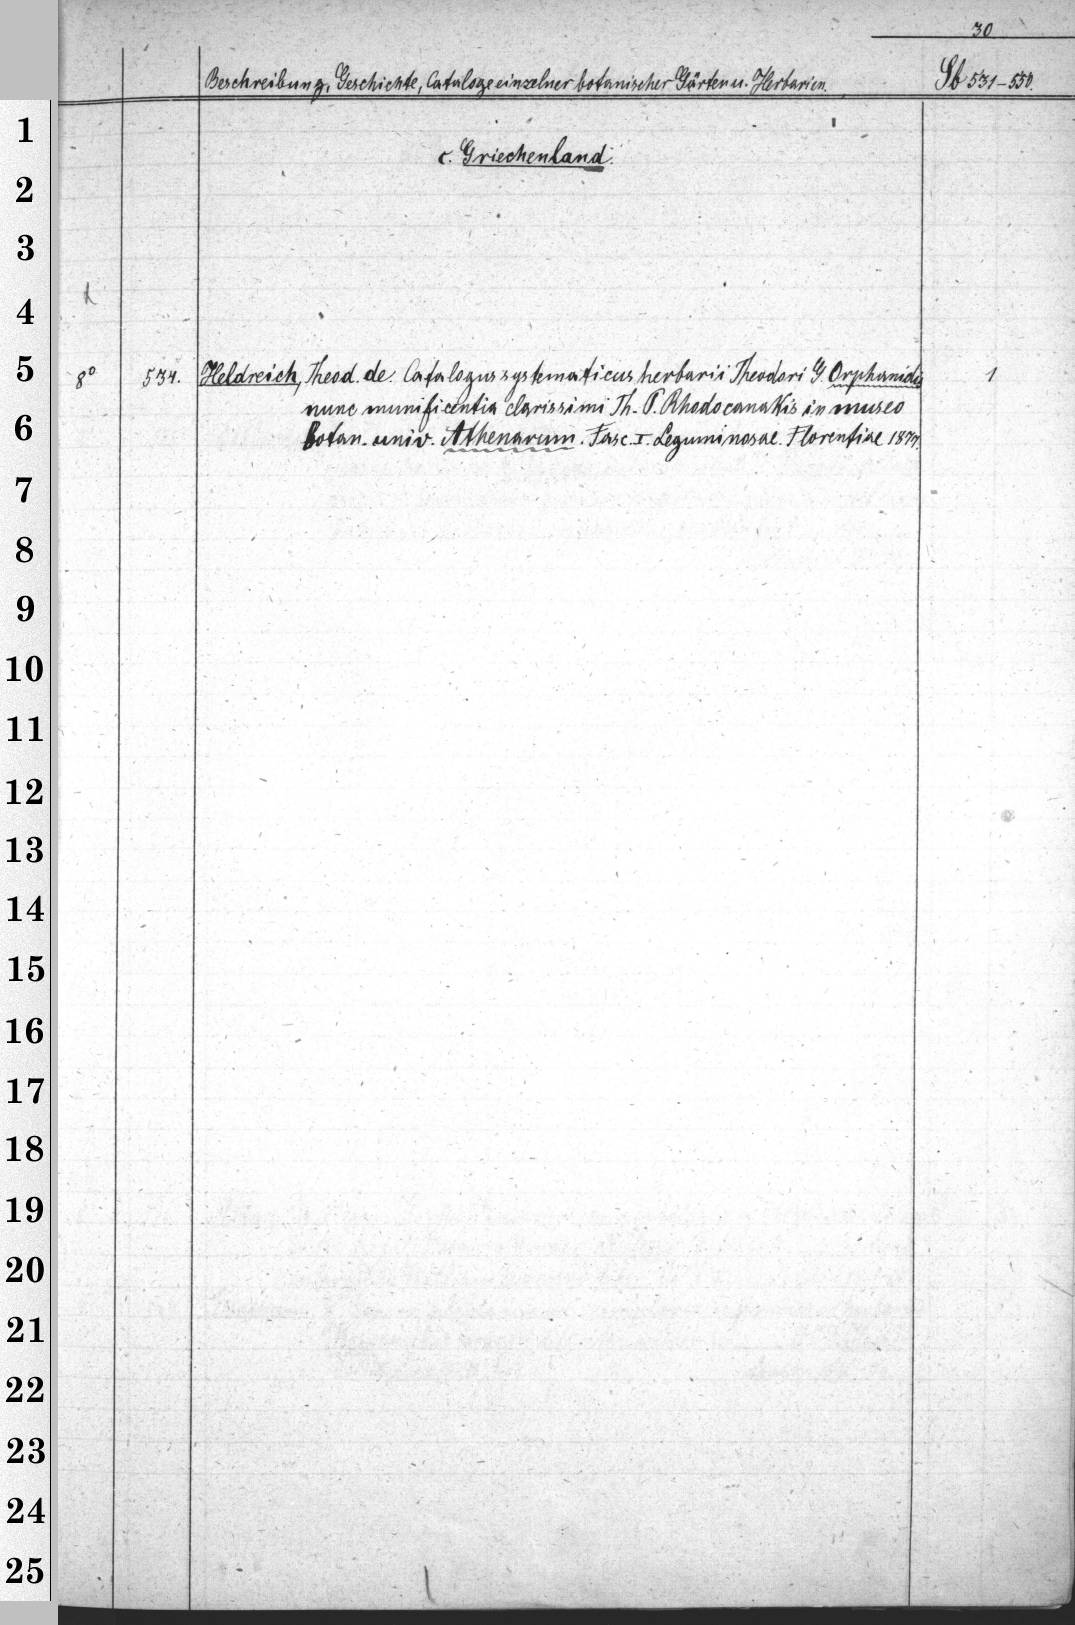 30
Beschreibung, Geschichte, Cataloge einzelner botanischer Gärten u. Herbarien.
Sb 531-550.
1
c. Griechenland.
2
3
4
5
8° 534. Heldreich, Theod. de. Catalogus systematicus herbarii Theodori G. Orphanidis 1
nunc munificentia clarissimi Th. P. Rhodocanakis in museo
6
botan. univ. Athenarum. Fasc. I. Leguminosae. Florentiae 1877.
7
8
9
10
11
12
13
14
15
16
17
18
19
20
21
22
23
24
25